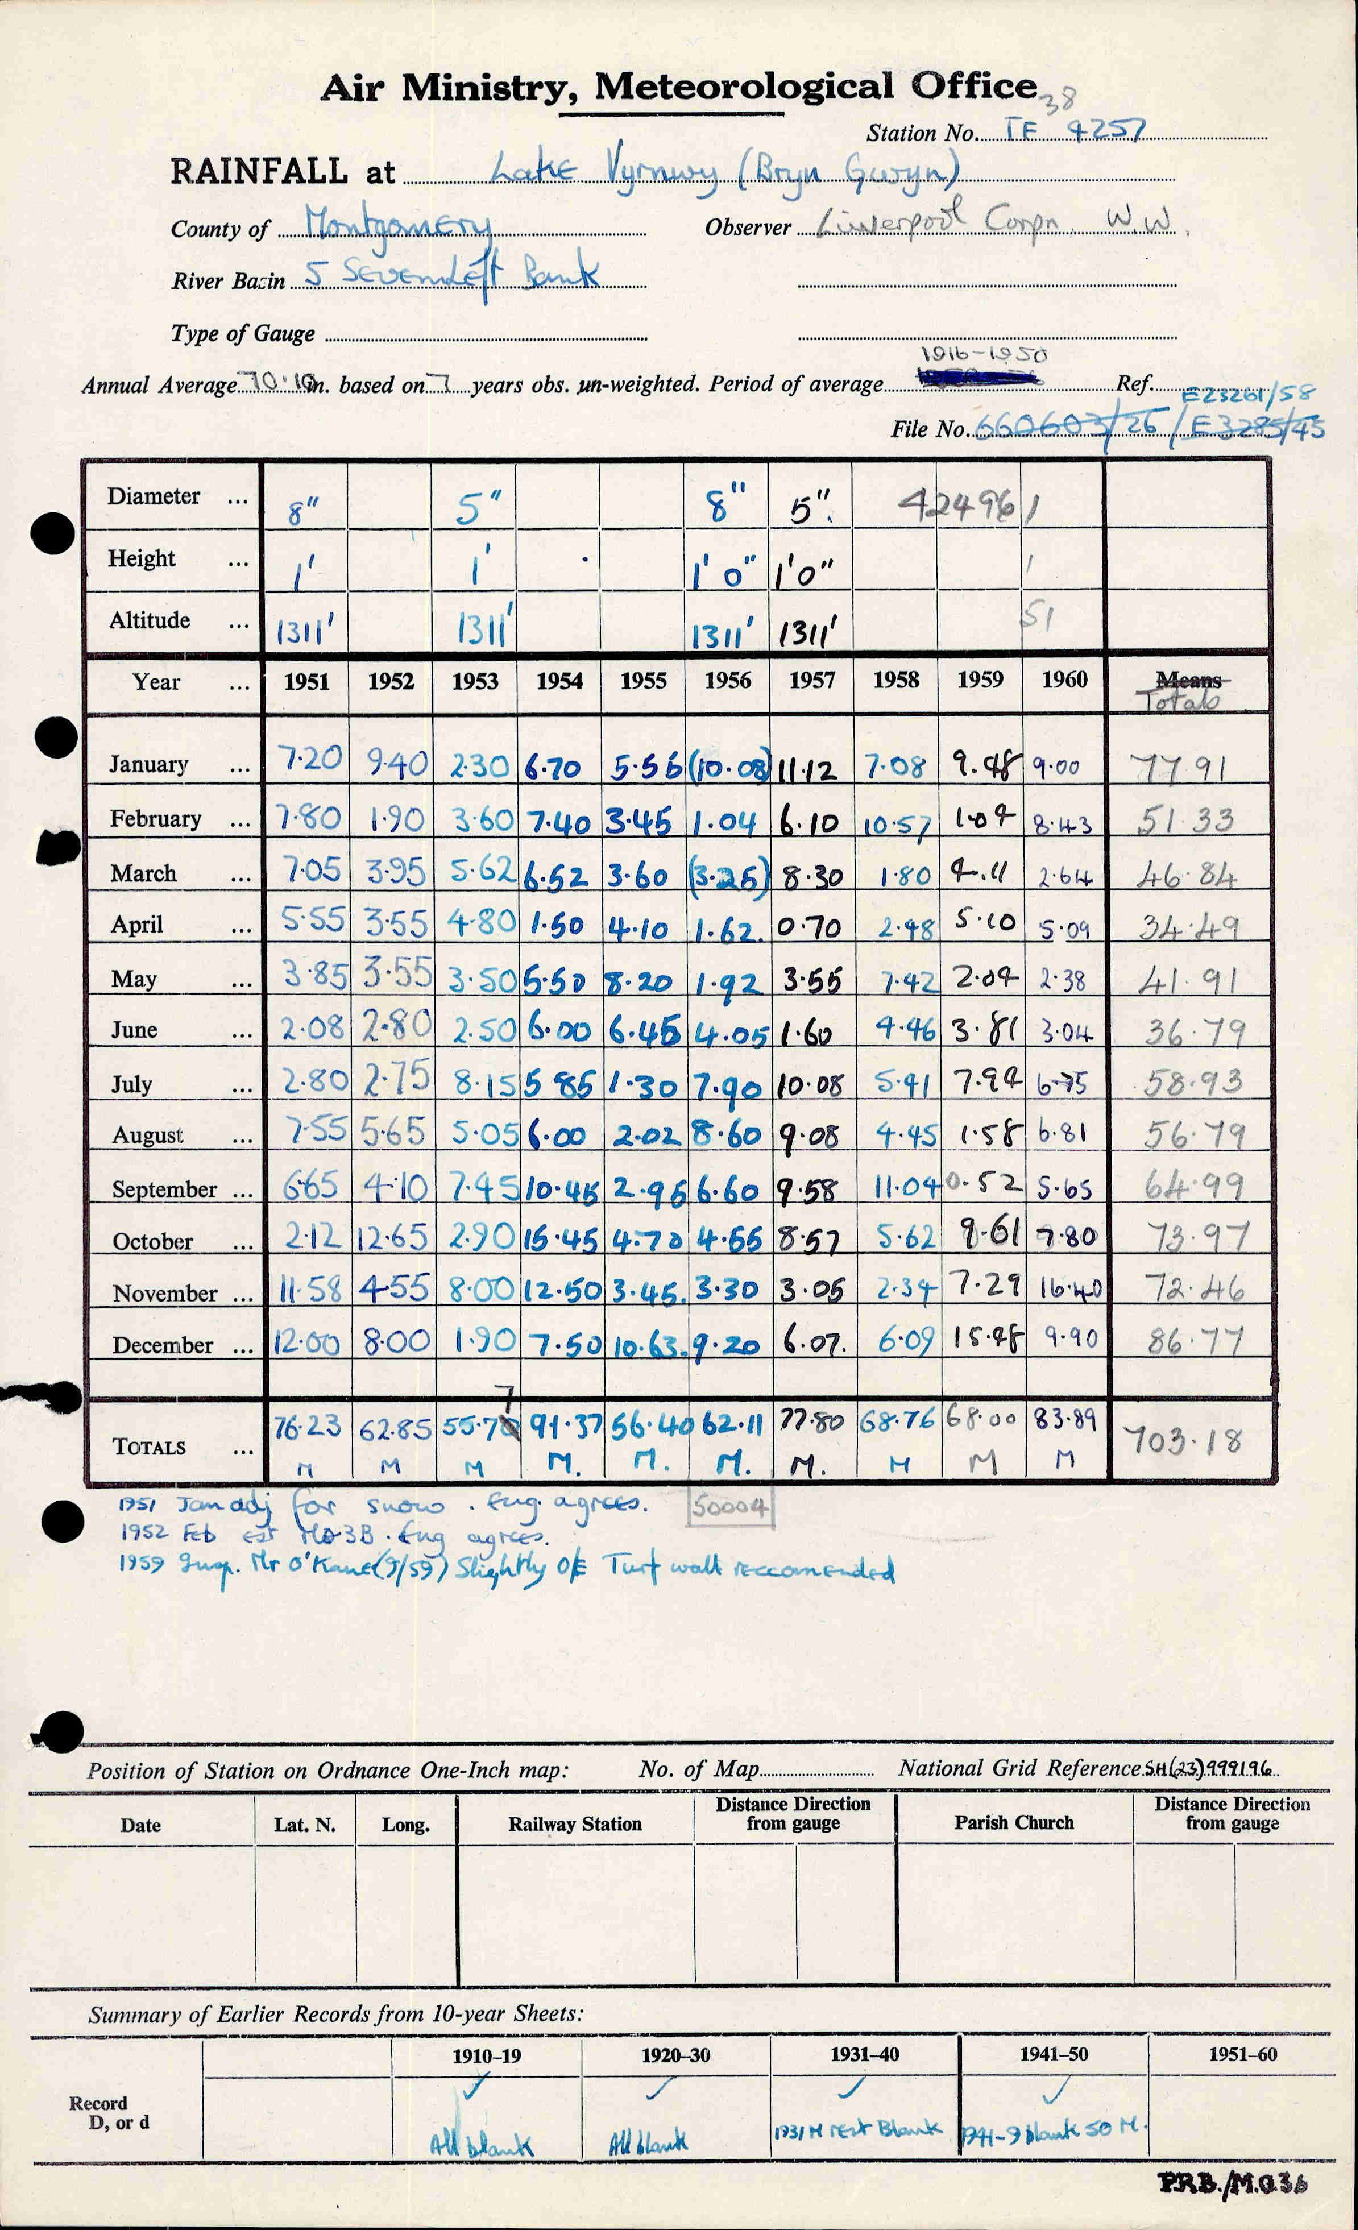 Air Ministry, Meteorological Office
38
Station No. TE 4257
RAINFALL at Lake Vyrnwy (Bryn Gwyn)
County of Montgomery Observer Liverpool Corpn. W.W.
River Basin 5 Severn Left Bank
Type of Gauge
1916-1950
Annual Average 70.10 in. based on 7 years obs. un-weighted. Period of average Ref. E23261/58
File No. 660603/26 / E3285/45
Diameter ... 8" 5" 8" 5". 424961
Height ... 1' 1' 1' 0" 1'0" 1
Altitude ... 1311' 1311' 1311' 1311' 51
Year ... 1951 1952 1953 1954 1955 1956 1957 1958 1959 1960 Means
Totals
January ... 7.20 9.40 2.30 6.70 5.55 (10.08) 11.12 7.08 9.48 9.00 77.91
February ... 7.80 1.90 3.60 7.40 3.45 1.04 6.10 10.57 1.04 8.43 51.33
March ... 7.05 3.95 5.62 6.52 3.60 (3.25) 8.30 1.80 4.11 2.64 46.84
April ... 5.55 3.55 4.80 1.50 4.10 1.62. 0.70 2.48 5.10 5.09 34.49
May ... 3.85 3.55 3.50 5.50 8.20 1.92 3.55 7.42 2.04 2.38 41.91
June ... 2.08 2.80 2.50 6.00 6.45 4.05 1.60 4.46 3.81 3.04 36.79
July ... 2.80 2.75 8.15 5 85 1.30 7.90 10.08 5.41 7.94 6.75 58.93
August ... 7.55 5.65 5.05 6.00 2.02 8.60 9.08 4.45 1.58 6.81 56.79
September ... 6.65 4.10 7.45 10.45 2.95 6.60 9.58 11.04 0.52 5.65 64.99
October ... 2.12 12.65 2.90 15.45 4.70 4.55 8.57 5.62 9.61 7.80 73.97
November ... 11.58 4.55 8.00 12.50 3.45. 3.30 3.05 2.34 7.29 16.40 72.46
December ... 12.00 8.00 1.90 7.50 10.63. 9.20 6.07. 6.09 15.48 9.90 86.77
TOTALS ... 76.23 62.85 55.77 91.37 56.40 62.11 77.80 68.76 68.00 83.89 703.18
M M M M. M. M. M. M M M
1951 Jan adj for snow. Eng. agrees. 50004
1952 Feb est MO3B. Eng agrees.
1959 Insp. Mr O'Kane (9/59) Slightly O/E Turf wall reccomended
Position of Station on Ordnance One-Inch map: No. of Map National Grid Reference SH(23)999196
Date Lat. N. Long. Railway Station Distance Direction from gauge Parish Church Distance Direction from gauge
Summary of Earlier Records from 10-year Sheets:
1910–19 1920–30 1931–40 1941–50 1951–60
Record
D, or d
✓ ✓ ✓ ✓
All blank All blank 1931 M rest Blank 1941-9 blank 50 M.
P.R.B./M.O.36